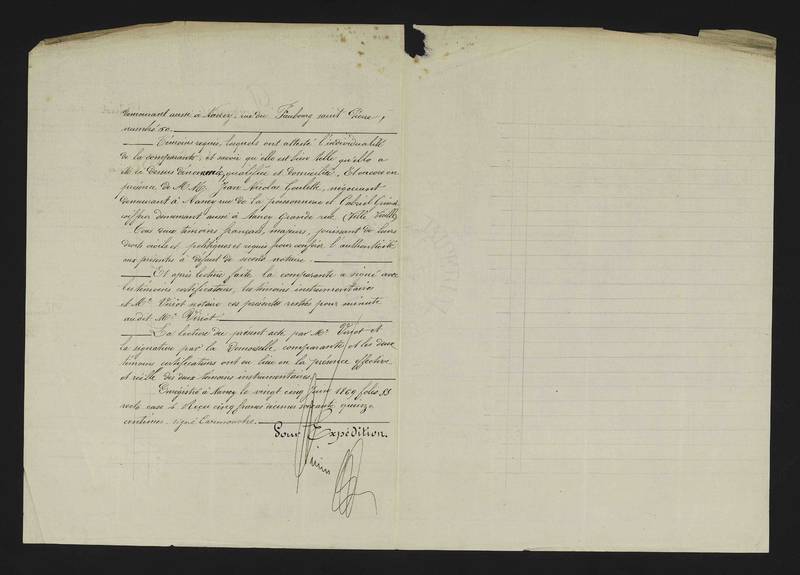 demeurant aussi à Nancy, rue du Faubourg saint Pierre,
numéro 50.
Témoins requis, lesquels ont attesté l'individualité
de la comparante, et savoir qu'elle est bien telle qu'elle a
été ci-dessus dénommée, qualifiée et domiciliée. Et encore en
présence de M.M. Jean Nicolas Goulette, négociant
demeurant à Nancy rue de la poissonnerie et Gabriel
coiffeur demeurant aussi à Nancy Grande rue (Ville Vieille)
Tous deux témoins français, majeurs, jouissant de leurs
droits civils et politiques et requis pour conférer l'authenticité
aux présentes à défaut de second notaire.
Et après lecture faite la comparante a signé avec
les témoins certificateurs, les témoins instrumentaires
et Me Viriot notaire ces présentes restées pour minute
audit Me Viriot
La lecture du présent acte par Me Viriot et
la signature par la Demoiselle comparante et les deux
témoins certificateurs ont eu lieu en la présence effective
et réelle des deux témoins instrumentaires
Enregistré à Nancy le vingt cinq Juin 1869 folio 55
recto case 4 Reçu cinq francs décimes soixante quinze
centimes. signé
Pour Expédition.